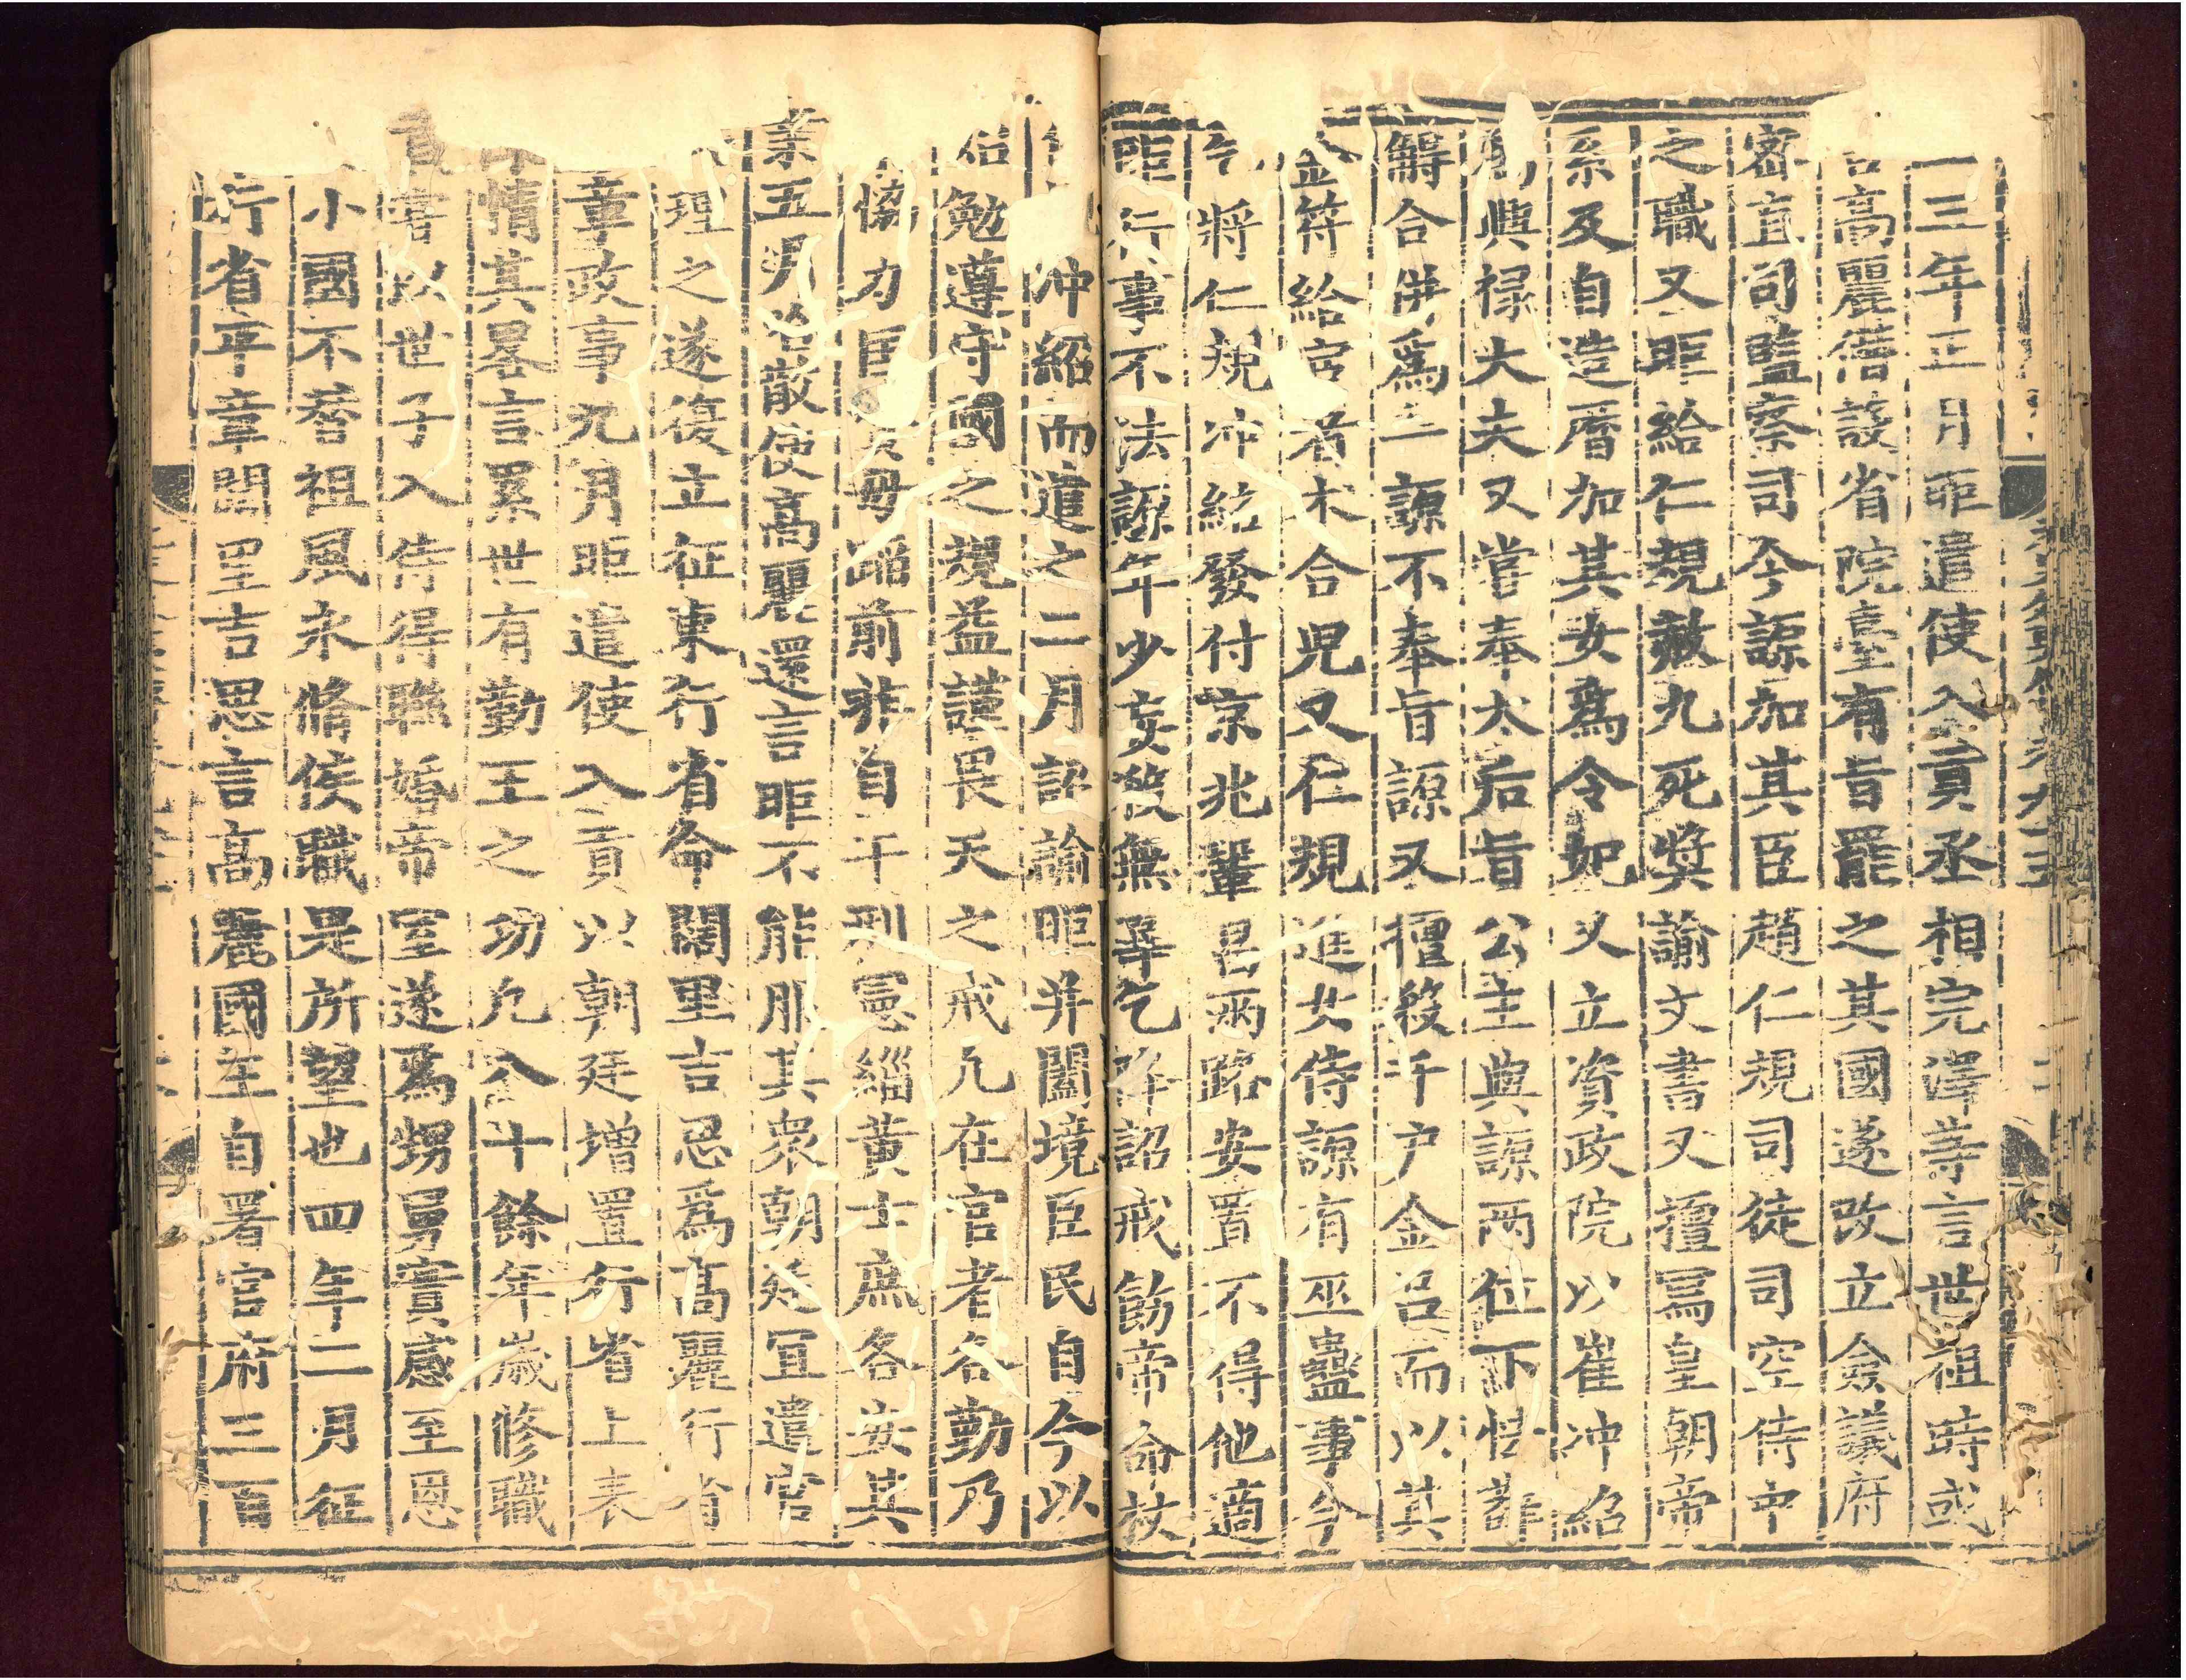 三年正月昛遣使入貢丞相完澤等言世祖時或
言高麗僭設省院臺有旨罷之其國遂改立僉議府
密直司監察司今謜加其臣趙仁規司徒司空侍中
之職又昛給仁規赦九死奬諭文書又擅冩皇朝帝
系及自造曆加其女爲令妃又立資政院以崔冲紹
爲興禄大夫又嘗奉太后旨公主與謜兩位下怯薛
觮合倂爲一謜不奉旨謜又擅殺千户金呂而以其
金符給宦者术合兒又仁規進女侍謜有巫蠱事今
乞將仁規冲紹發付京兆鞏昌兩路安置不得他適
昛行事不法謜年少妄殺無辜乞降詔戒飭帝命杖
冲紹而遣之二月詔諭昛并闔境臣民自今以
始勉遵守國之規益謹畏天之戒凡在官者各勤乃
協力匡毋蹈前非自干刑憲緇黄士庶各安其
業五月哈散使高麗還言昛不能服其衆朝廷宜遣官
理之遂復立征東行省命闊里吉思爲高麗行省
章政事九月昛遣使入貢以朝廷增置行省上表
情其畧言累世有勤王之功凡八十餘年歲修職
貢嘗以世子入侍得聯婚帝室遂爲甥舅實感至恩
小國不替祖風永脩侯職是所望也四年二月征
行省平章闊里吉思言高麗國王自署官府三百